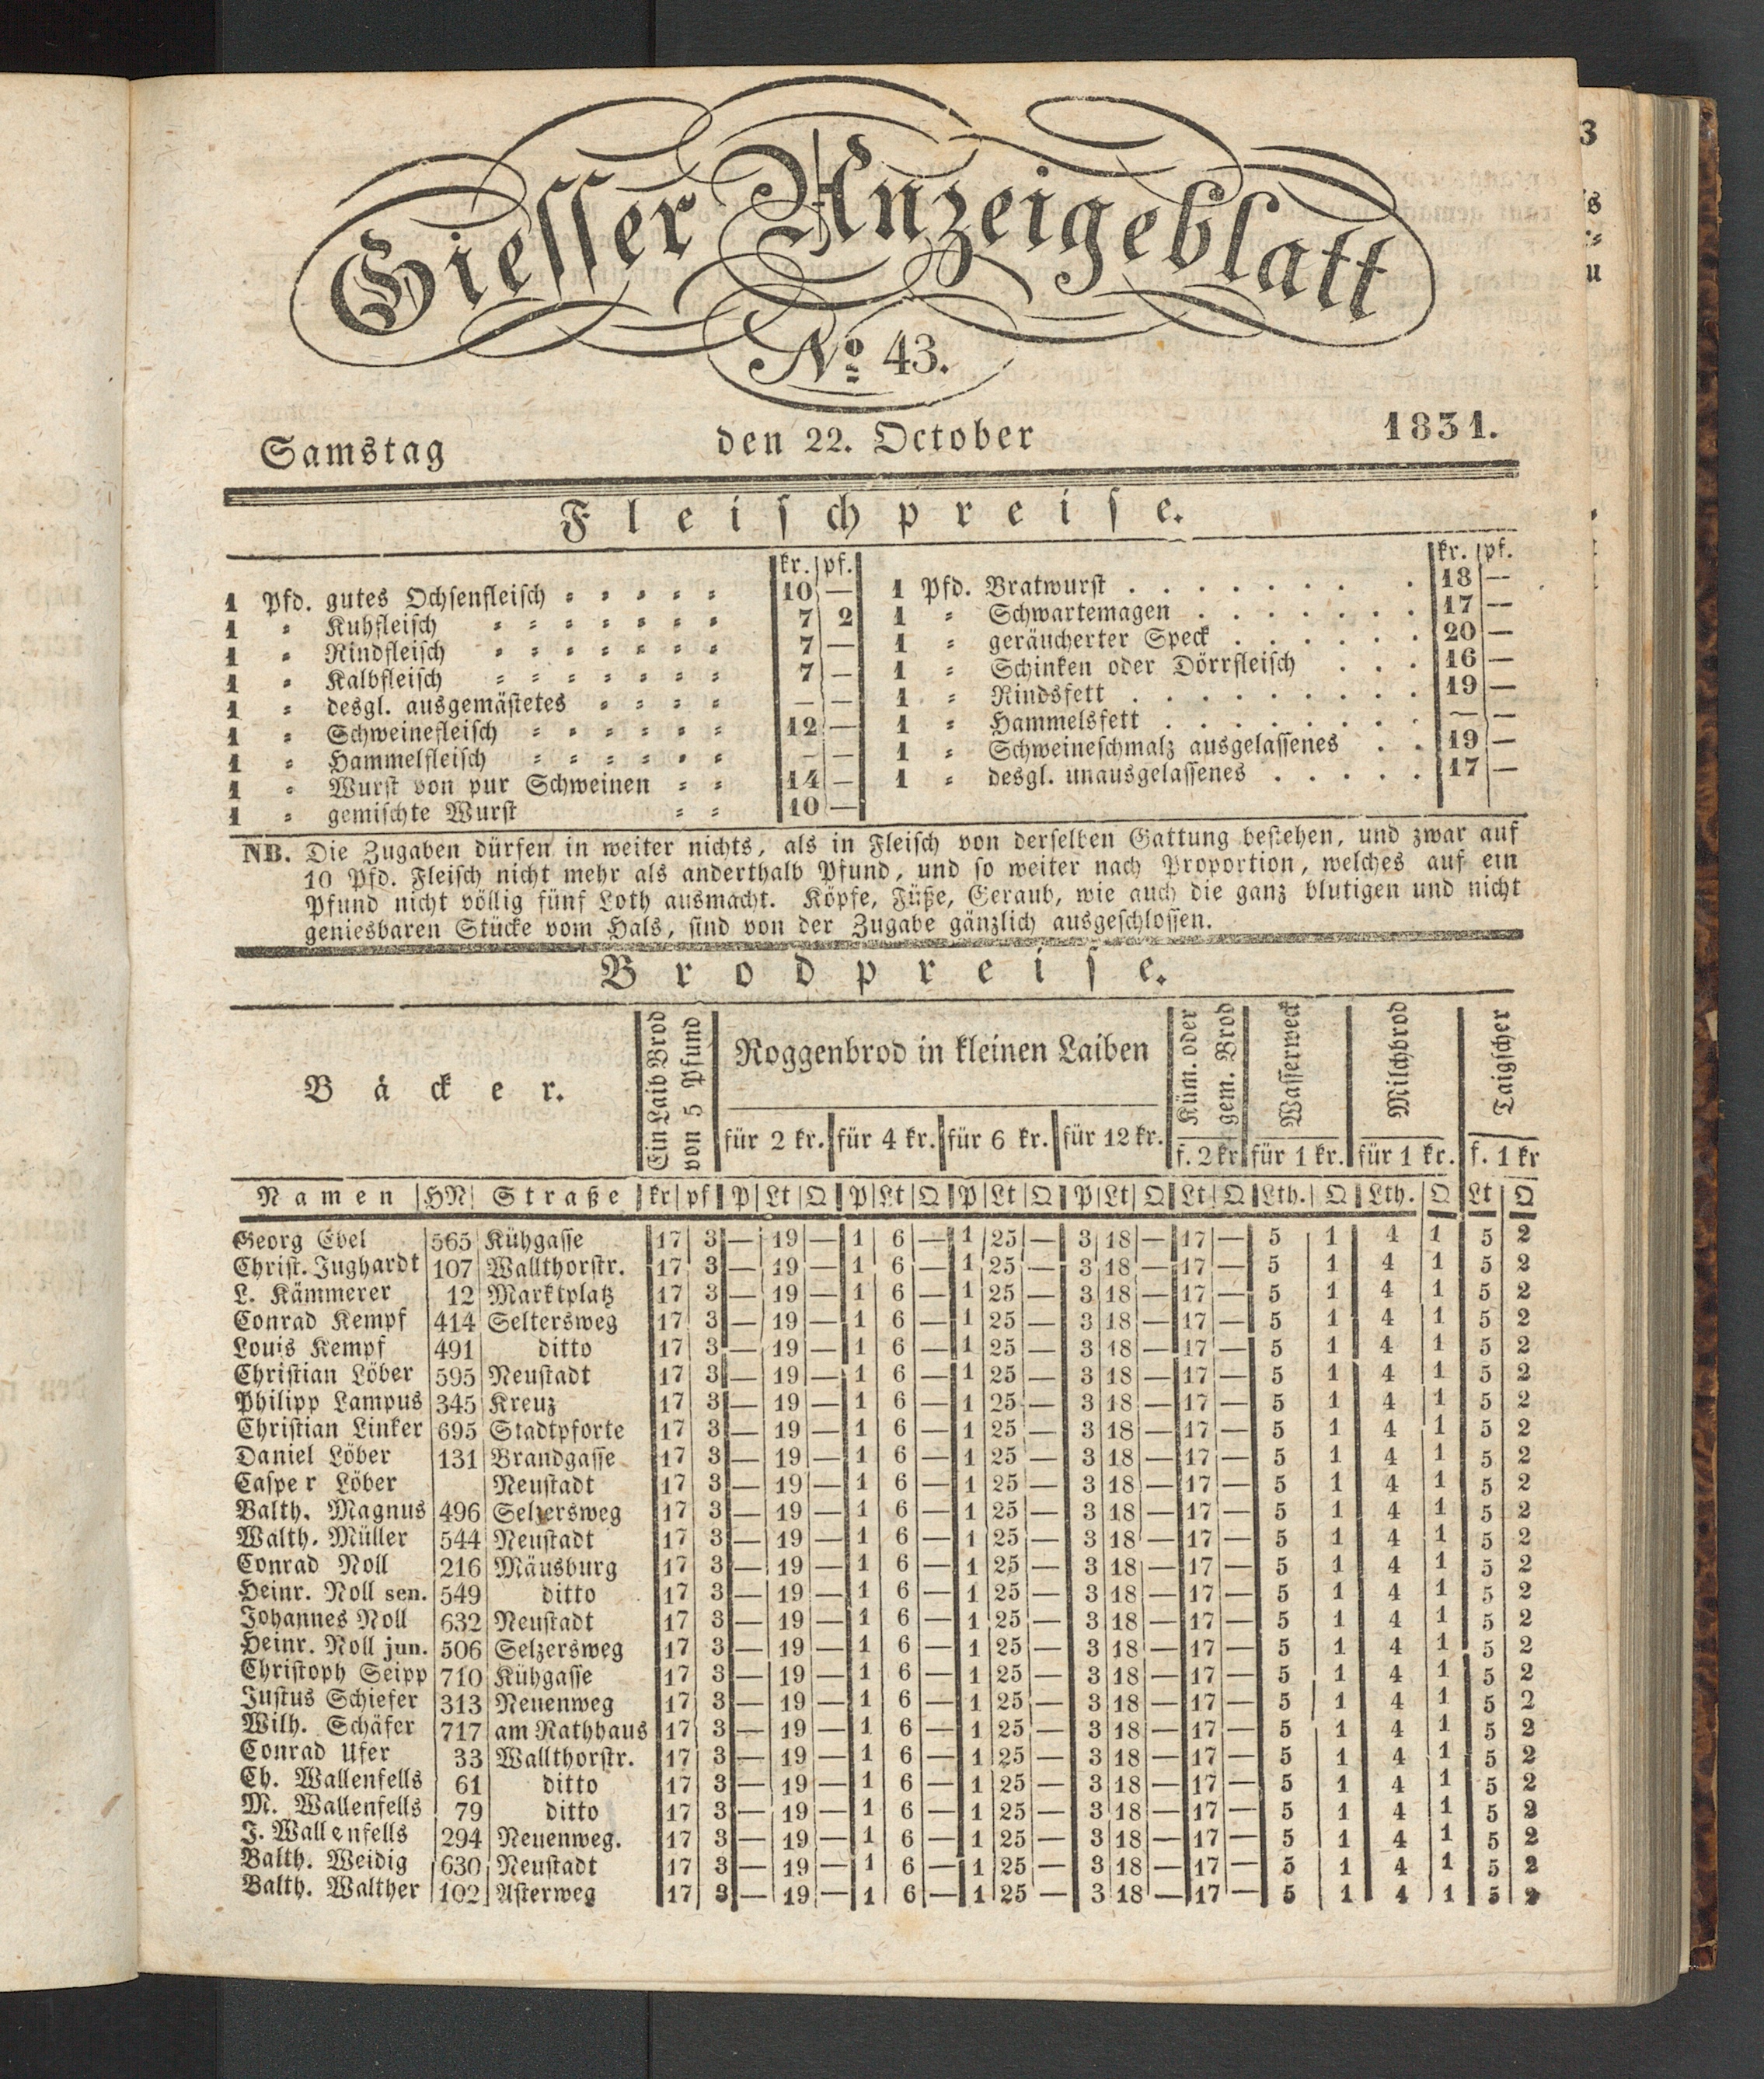 Giesser Anzeigeblatt
No. 43.
Samstag den 22. October 1831.
Fleischpreise.
kr. pf.
1 Pfd. gutes Ochsenfleisch 10 —
1 = Kuhfleisch 7 2
1 = Rindfleisch 7 —
1 = Kalbfleisch 7 —
1 = desgl. ausgemästetes — —
1 = Schweinefleisch 12 —
1 = Hammelfleisch — —
1 = Wurst von pur Schweinen 14 —
1 = gemischte Wurst 10 —
kr. pf.
1 Pfd. Bratwurst 18 —
1 = Schwartemagen 17 —
1 = geräucherter Speck 20 —
1 = Schinken oder Dörrfleisch 16 —
1 = Rindsfett 19 —
1 = Hammelsfett — —
1 = Schweineschmalz ausgelassenes 19 —
1 = desgl. unausgelassenes 17 —
NB. Die Zugaben dürfen in weiter nichts, als in Fleisch von derselben Gattung bestehen, und zwar auf
10 Pfd. Fleisch nicht mehr als anderthalb Pfund, und so weiter nach Proportion, welches auf ein
Pfund nicht völlig fünf Loth ausmacht. Köpfe, Füße, Geraub, wie auch die ganz blutigen und nicht
geniesbaren Stücke vom Hals, sind von der Zugabe gänzlich ausgeschlossen.
Brodpreise.
Bäcker.
Ein Laib Brod
von 5 Pfund
Roggenbrod in kleinen Laiben
für 2 kr. für 4 kr. für 6 kr. für 12 kr.
Küm. oder
gem. Brod
f. 2 kr
Wasserweck
für 1 kr.
Milchbrod
für 1 kr.
Taigscher
f. 1 kr
Namen HN Straße kr pf P Lt Q P Lt Q P Lt Q P Lt Q Lt Q Lth. Q Lth. Q Lt Q
Georg Ebel 565 Kühgasse 17 3 — 19 — 1 6 — 1 25 — 3 18 — 17 — 5 1 4 1 5 2
Christ. Jughardt 107 Wallthorstr. 17 3 — 19 — 1 6 — 1 25 — 3 18 — 17 — 5 1 4 1 5 2
L. Kämmerer 12 Marktplatz 17 3 — 19 — 1 6 — 1 25 — 3 18 — 17 — 5 1 4 1 5 2
Conrad Kempf 414 Seltersweg 17 3 — 19 — 1 6 — 1 25 — 3 18 — 17 — 5 1 4 1 5 2
Louis Kempf 491 ditto 17 3 — 19 — 1 6 — 1 25 — 3 18 — 17 — 5 1 4 1 5 2
Christian Löber 595 Neustadt 17 3 — 19 — 1 6 — 1 25 — 3 18 — 17 — 5 1 4 1 5 2
Philipp Lampus 345 Kreuz 17 3 — 19 — 1 6 — 1 25 — 3 18 — 17 — 5 1 4 1 5 2
Christian Linker 695 Stadtpforte 17 3 — 19 — 1 6 — 1 25 — 3 18 — 17 — 5 1 4 1 5 2
Daniel Löber 131 Brandgasse 17 3 — 19 — 1 6 — 1 25 — 3 18 — 17 — 5 1 4 1 5 2
Casper Löber Neustadt 17 3 — 19 — 1 6 — 1 25 — 3 18 — 17 — 5 1 4 1 5 2
Balth. Magnus 496 Selzersweg 17 3 — 19 — 1 6 — 1 25 — 3 18 — 17 — 5 1 4 1 5 2
Walth. Müller 544 Neustadt 17 3 — 19 — 1 6 — 1 25 — 3 18 — 17 — 5 1 4 1 5 2
Conrad Noll 216 Mäusburg 17 3 — 19 — 1 6 — 1 25 — 3 18 — 17 — 5 1 4 1 5 2
Heinr. Noll sen. 549 ditto 17 3 — 19 — 1 6 — 1 25 — 3 18 — 17 — 5 1 4 1 5 2
Johannes Noll 632 Neustadt 17 3 — 19 — 1 6 — 1 25 — 3 18 — 17 — 5 1 4 1 5 2
Heinr. Noll jun. 506 Selzersweg 17 3 — 19 — 1 6 — 1 25 — 3 18 — 17 — 5 1 4 1 5 2
Christoph Seipp 710 Kühgasse 17 3 — 19 — 1 6 — 1 25 — 3 18 — 17 — 5 1 4 1 5 2
Justus Schiefer 313 Neuenweg 17 3 — 19 — 1 6 — 1 25 — 3 18 — 17 — 5 1 4 1 5 2
Wilh. Schäfer 717 am Rathhaus 17 3 — 19 — 1 6 — 1 25 — 3 18 — 17 — 5 1 4 1 5 2
Conrad Ufer 33 Wallthorstr. 17 3 — 19 — 1 6 — 1 25 — 3 18 — 17 — 5 1 4 1 5 2
Ch. Wallenfells 61 ditto 17 3 — 19 — 1 6 — 1 25 — 3 18 — 17 — 5 1 4 1 5 2
M. Wallenfells 79 ditto 17 3 — 19 — 1 6 — 1 25 — 3 18 — 17 — 5 1 4 1 5 2
J. Wallenfells 294 Neuenweg. 17 3 — 19 — 1 6 — 1 25 — 3 18 — 17 — 5 1 4 1 5 2
Balth. Weidig 630 Neustadt 17 3 — 19 — 1 6 — 1 25 — 3 18 — 17 — 5 1 4 1 5 2
Balth. Walther 102 Asterweg 17 3 — 19 — 1 6 — 1 25 — 3 18 — 17 — 5 1 4 1 5 2